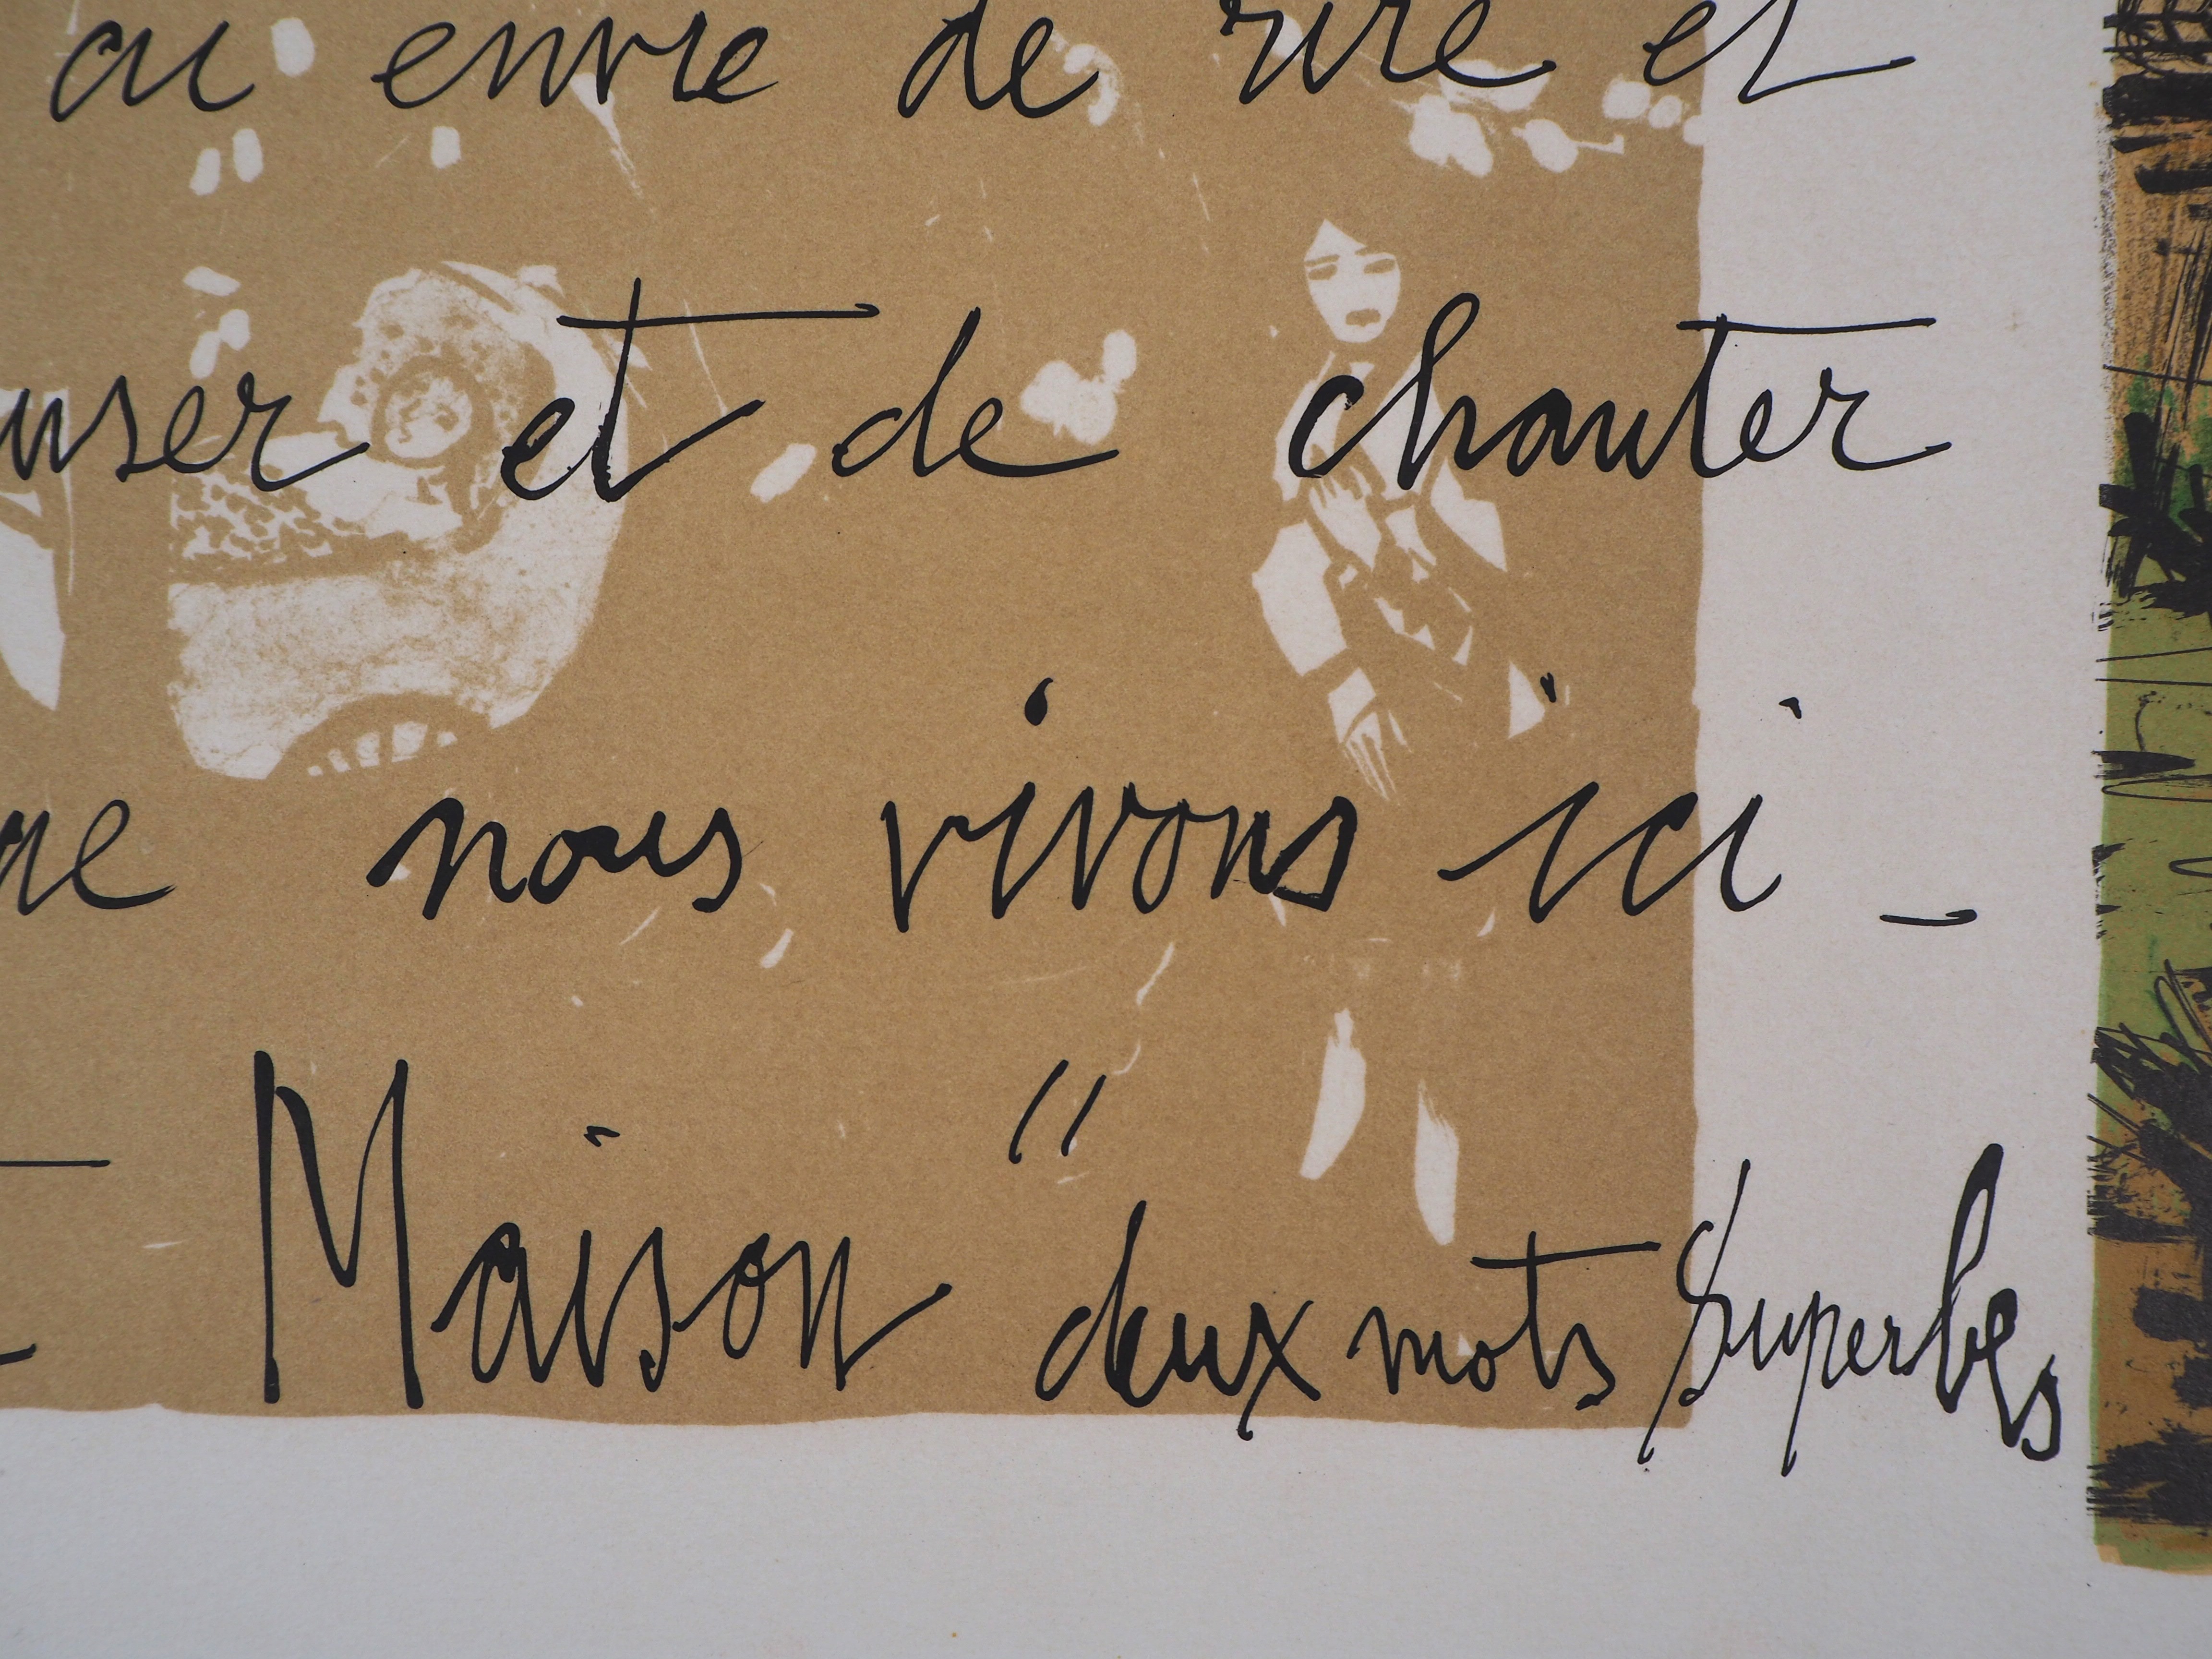 ai envie de rire et
user et de chanter
ne nous vivons ici -
Maison" deux mots superbes